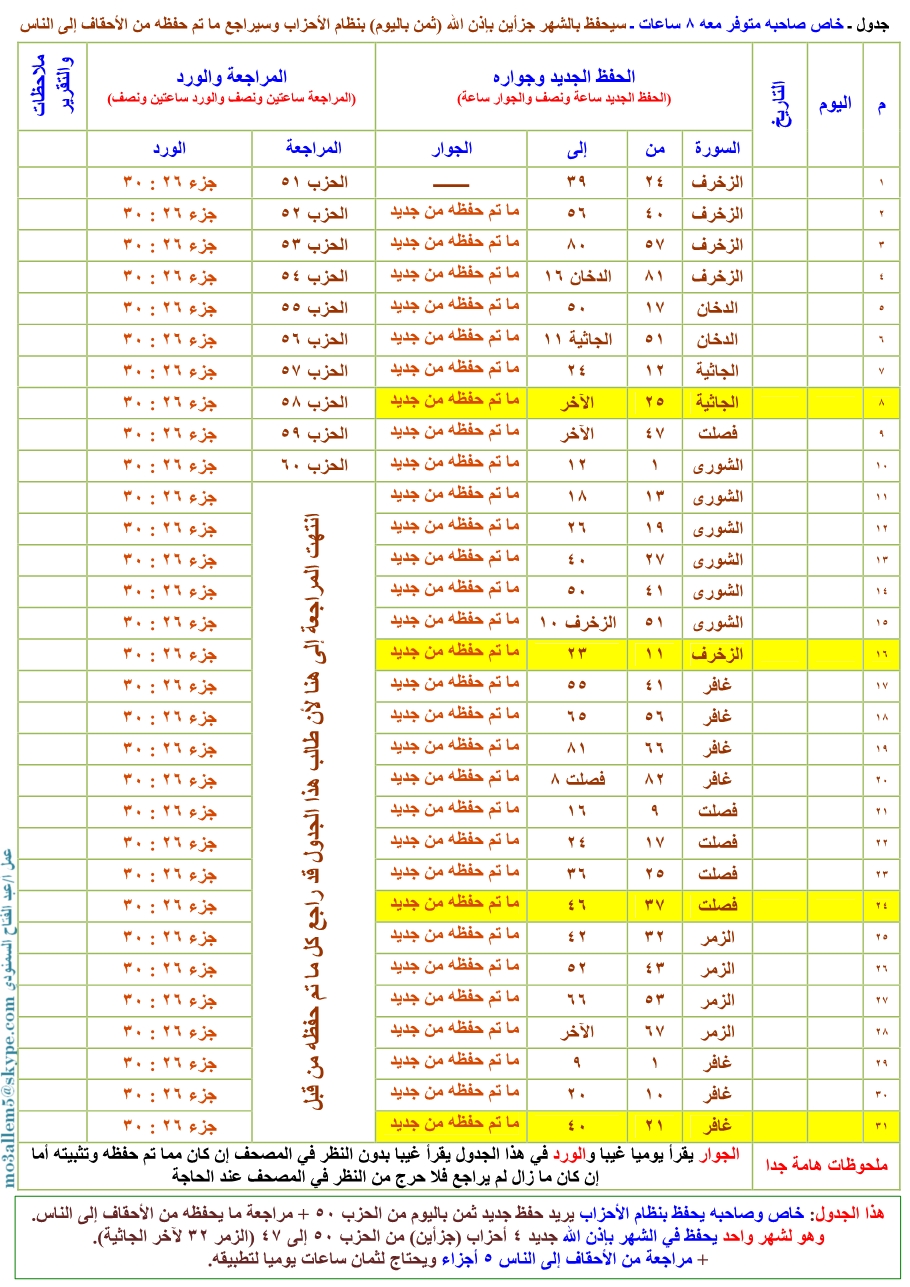 جدول ـ خاص صاحبه متوفر معه ٨ ساعات ـ سيحفظ بالشهر جزأين بإذن الله (ثمن باليوم) بنظام الأحزاب وسيراجع ما تم حفظه من الأحقاف إلى الناس
م اليوم التاريخ الحفظ الجديد وجواره المراجعة والورد ملاحظات والتقرير
(الحفظ الجديد ساعة ونصف والجوار ساعة) (المراجعة ساعتين ونصف والورد ساعتين ونصف)
السورة من إلى الجوار المراجعة الورد
١ الزخرف ٢٤ ٣٩ ـــــ الحزب ٥١ جزء ٢٦ : ٣٠
٢ الزخرف ٤٠ ٥٦ ما تم حفظه من جديد الحزب ٥٢ جزء ٢٦ : ٣٠
٣ الزخرف ٥٧ ٨٠ ما تم حفظه من جديد الحزب ٥٣ جزء ٢٦ : ٣٠
٤ الزخرف ٨١ الدخان ١٦ ما تم حفظه من جديد الحزب ٥٤ جزء ٢٦ : ٣٠
٥ الدخان ١٧ ٥٠ ما تم حفظه من جديد الحزب ٥٥ جزء ٢٦ : ٣٠
٦ الدخان ٥١ الجاثية ١١ ما تم حفظه من جديد الحزب ٥٦ جزء ٢٦ : ٣٠
٧ الجاثية ١٢ ٢٤ ما تم حفظه من جديد الحزب ٥٧ جزء ٢٦ : ٣٠
٨ الجاثية ٢٥ الآخر ما تم حفظه من جديد الحزب ٥٨ جزء ٢٦ : ٣٠
٩ فصلت ٤٧ الآخر ما تم حفظه من جديد الحزب ٥٩ جزء ٢٦ : ٣٠
١٠ الشورى ١ ١٢ ما تم حفظه من جديد الحزب ٦٠ جزء ٢٦ : ٣٠
١١ الشورى ١٣ ١٨ ما تم حفظه من جديد جزء ٢٦ : ٣٠
١٢ الشورى ١٩ ٢٦ ما تم حفظه من جديد جزء ٢٦ : ٣٠
١٣ الشورى ٢٧ ٤٠ ما تم حفظه من جديد جزء ٢٦ : ٣٠
١٤ الشورى ٤١ ٥٠ ما تم حفظه من جديد جزء ٢٦ : ٣٠
١٥ الشورى ٥١ الزخرف ١٠ ما تم حفظه من جديد جزء ٢٦ : ٣٠
١٦ الزخرف ١١ ٢٣ ما تم حفظه من جديد جزء ٢٦ : ٣٠
١٧ غافر ٤١ ٥٥ ما تم حفظه من جديد جزء ٢٦ : ٣٠
١٨ غافر ٥٦ ٦٥ ما تم حفظه من جديد جزء ٢٦ : ٣٠
١٩ غافر ٦٦ ٨١ ما تم حفظه من جديد جزء ٢٦ : ٣٠
٢٠ غافر ٨٢ فصلت ٨ ما تم حفظه من جديد جزء ٢٦ : ٣٠
٢١ فصلت ٩ ١٦ ما تم حفظه من جديد جزء ٢٦ : ٣٠
٢٢ فصلت ١٧ ٢٤ ما تم حفظه من جديد جزء ٢٦ : ٣٠
٢٣ فصلت ٢٥ ٣٦ ما تم حفظه من جديد جزء ٢٦ : ٣٠
٢٤ فصلت ٣٧ ٤٦ ما تم حفظه من جديد جزء ٢٦ : ٣٠
٢٥ الزمر ٣٢ ٤٢ ما تم حفظه من جديد جزء ٢٦ : ٣٠
٢٦ الزمر ٤٣ ٥٢ ما تم حفظه من جديد جزء ٢٦ : ٣٠
٢٧ الزمر ٥٣ ٦٦ ما تم حفظه من جديد جزء ٢٦ : ٣٠
٢٨ الزمر ٦٧ الآخر ما تم حفظه من جديد جزء ٢٦ : ٣٠
٢٩ غافر ١ ٩ ما تم حفظه من جديد جزء ٢٦ : ٣٠
٣٠ غافر ١٠ ٢٠ ما تم حفظه من جديد جزء ٢٦ : ٣٠
٣١ غافر ٢١ ٤٠ ما تم حفظه من جديد جزء ٢٦ : ٣٠
انتهت المراجعة إلى هنا لأن طالب هذا الجدول قد راجع كل ما تم حفظه من قبل
ملحوظات هامة جدا الجوار يقرأ يوميا غيبا والورد في هذا الجدول يقرأ غيبا بدون النظر في المصحف إن كان مما تم حفظه وتثبيته أما
إن كان ما زال لم يراجع فلا حرج من النظر في المصحف عند الحاجة
هذا الجدول: خاص وصاحبه يحفظ بنظام الأحزاب يريد حفظ جديد ثمن باليوم من الحزب ٥٠ + مراجعة ما يحفظه من الأحقاف إلى الناس.
وهو لشهر واحد يحفظ في الشهر بإذن الله جديد ٤ أحزاب (جزأين) من الحزب ٥٠ إلى ٤٧ (الزمر ٣٢ لآخر الجاثية).
+ مراجعة من الأحقاف إلى الناس ٥ أجزاء ويحتاج لثمان ساعات يوميا لتطبيقه.
عمل ا/عبد الفتاح السمنودي mo3allem5@skype.com